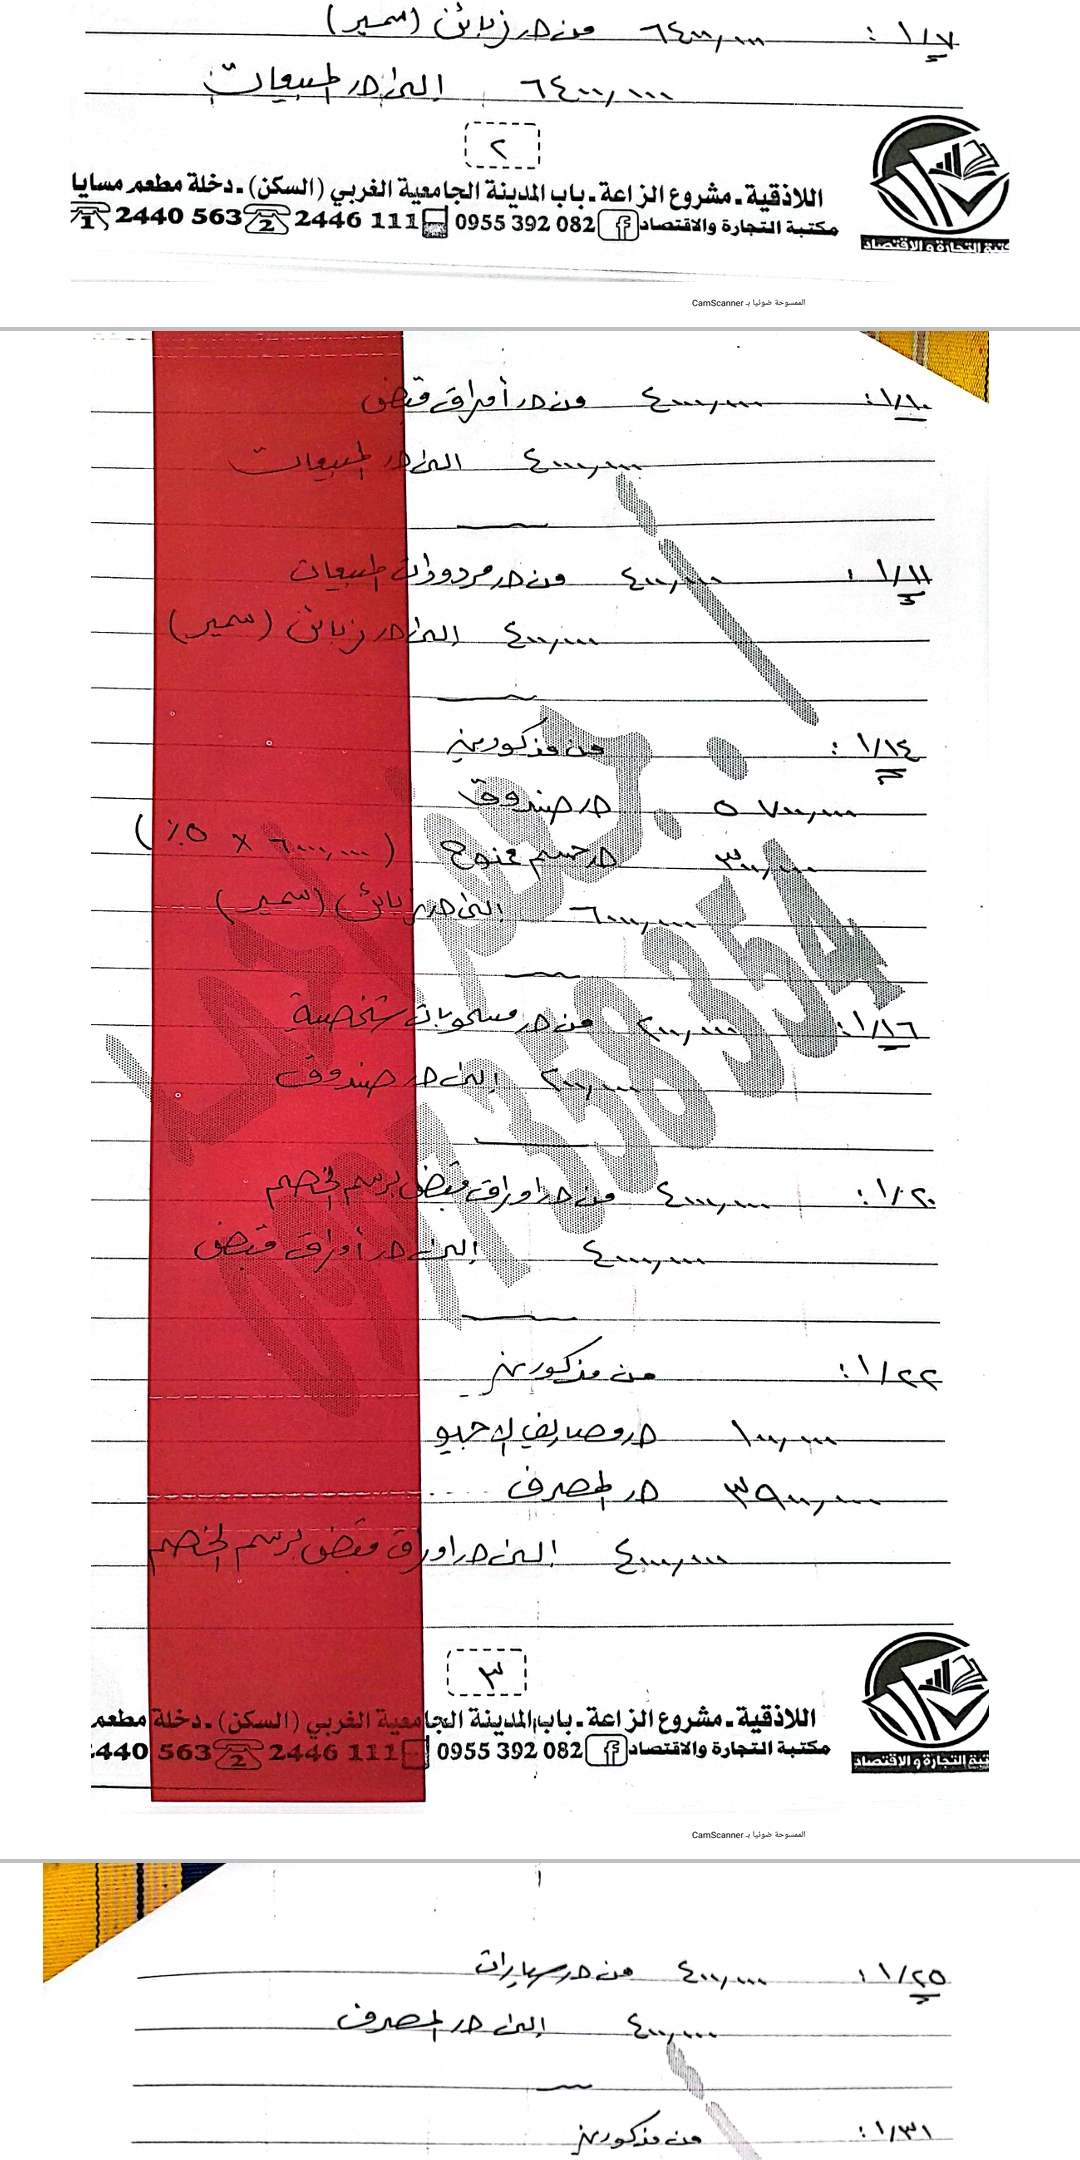 ١/٧ : ٦٤٠٠,٠٠٠ من حـ/ زبائن (سمير)
٦٤٠٠,٠٠٠ إلى حـ/ المبيعات
٢
اللاذقية ـ مشروع الزراعة ـ باب المدينة الجامعية الغربي (السكن) ـ دخلة مطعم مسايا
مكتبة التجارة والاقتصاد 0955 392 082 2446 111 2 2440 563 1
الممسوحة ضوئيا بـ CamScanner
١/١٠ : ٤٠٠٠,٠٠٠ من حـ/ أوراق قبض
٤٠٠٠,٠٠٠ إلى حـ/ المبيعات
١/١١ : ٤٠٠,٠٠٠ من حـ/ مردودات المبيعات
٤٠٠,٠٠٠ إلى حـ/ زبائن (سمير)
١/١٤ : من مذكورين
٥٧٠٠,٠٠٠ حـ/ صندوق
٣٠٠,٠٠٠ حـ/ حسم ممنوح (٦٠٠٠,٠٠٠ × ٥٪)
٦٠٠٠,٠٠٠ إلى حـ/ زبائن (سمير)
١/١٦ : ٢٠٠,٠٠٠ من حـ/ مسحوبات شخصية
٢٠٠,٠٠٠ إلى حـ/ صندوق
١/٢٠ : ٤٠٠٠,٠٠٠ من حـ/ أوراق قبض برسم الخصم
٤٠٠٠,٠٠٠ إلى حـ/ أوراق قبض
١/٢٢ : من مذكورين
١٠٠,٠٠٠ حـ/ مصاريف الآجيو
٣٩٠٠,٠٠٠ حـ/ المصرف
٤٠٠٠,٠٠٠ إلى حـ/ أوراق قبض برسم الخصم
٣
اللاذقية ـ مشروع الزراعة ـ باب المدينة الجامعية الغربي (السكن) ـ دخلة مطعم
مكتبة التجارة والاقتصاد 0955 392 082 2446 111 2 440 563
الممسوحة ضوئيا بـ CamScanner
١/٢٥ : ٤٠٠,٠٠٠ من حـ/ سيارات
٤٠٠,٠٠٠ إلى حـ/ المصرف
١/٣١ : من مذكورين